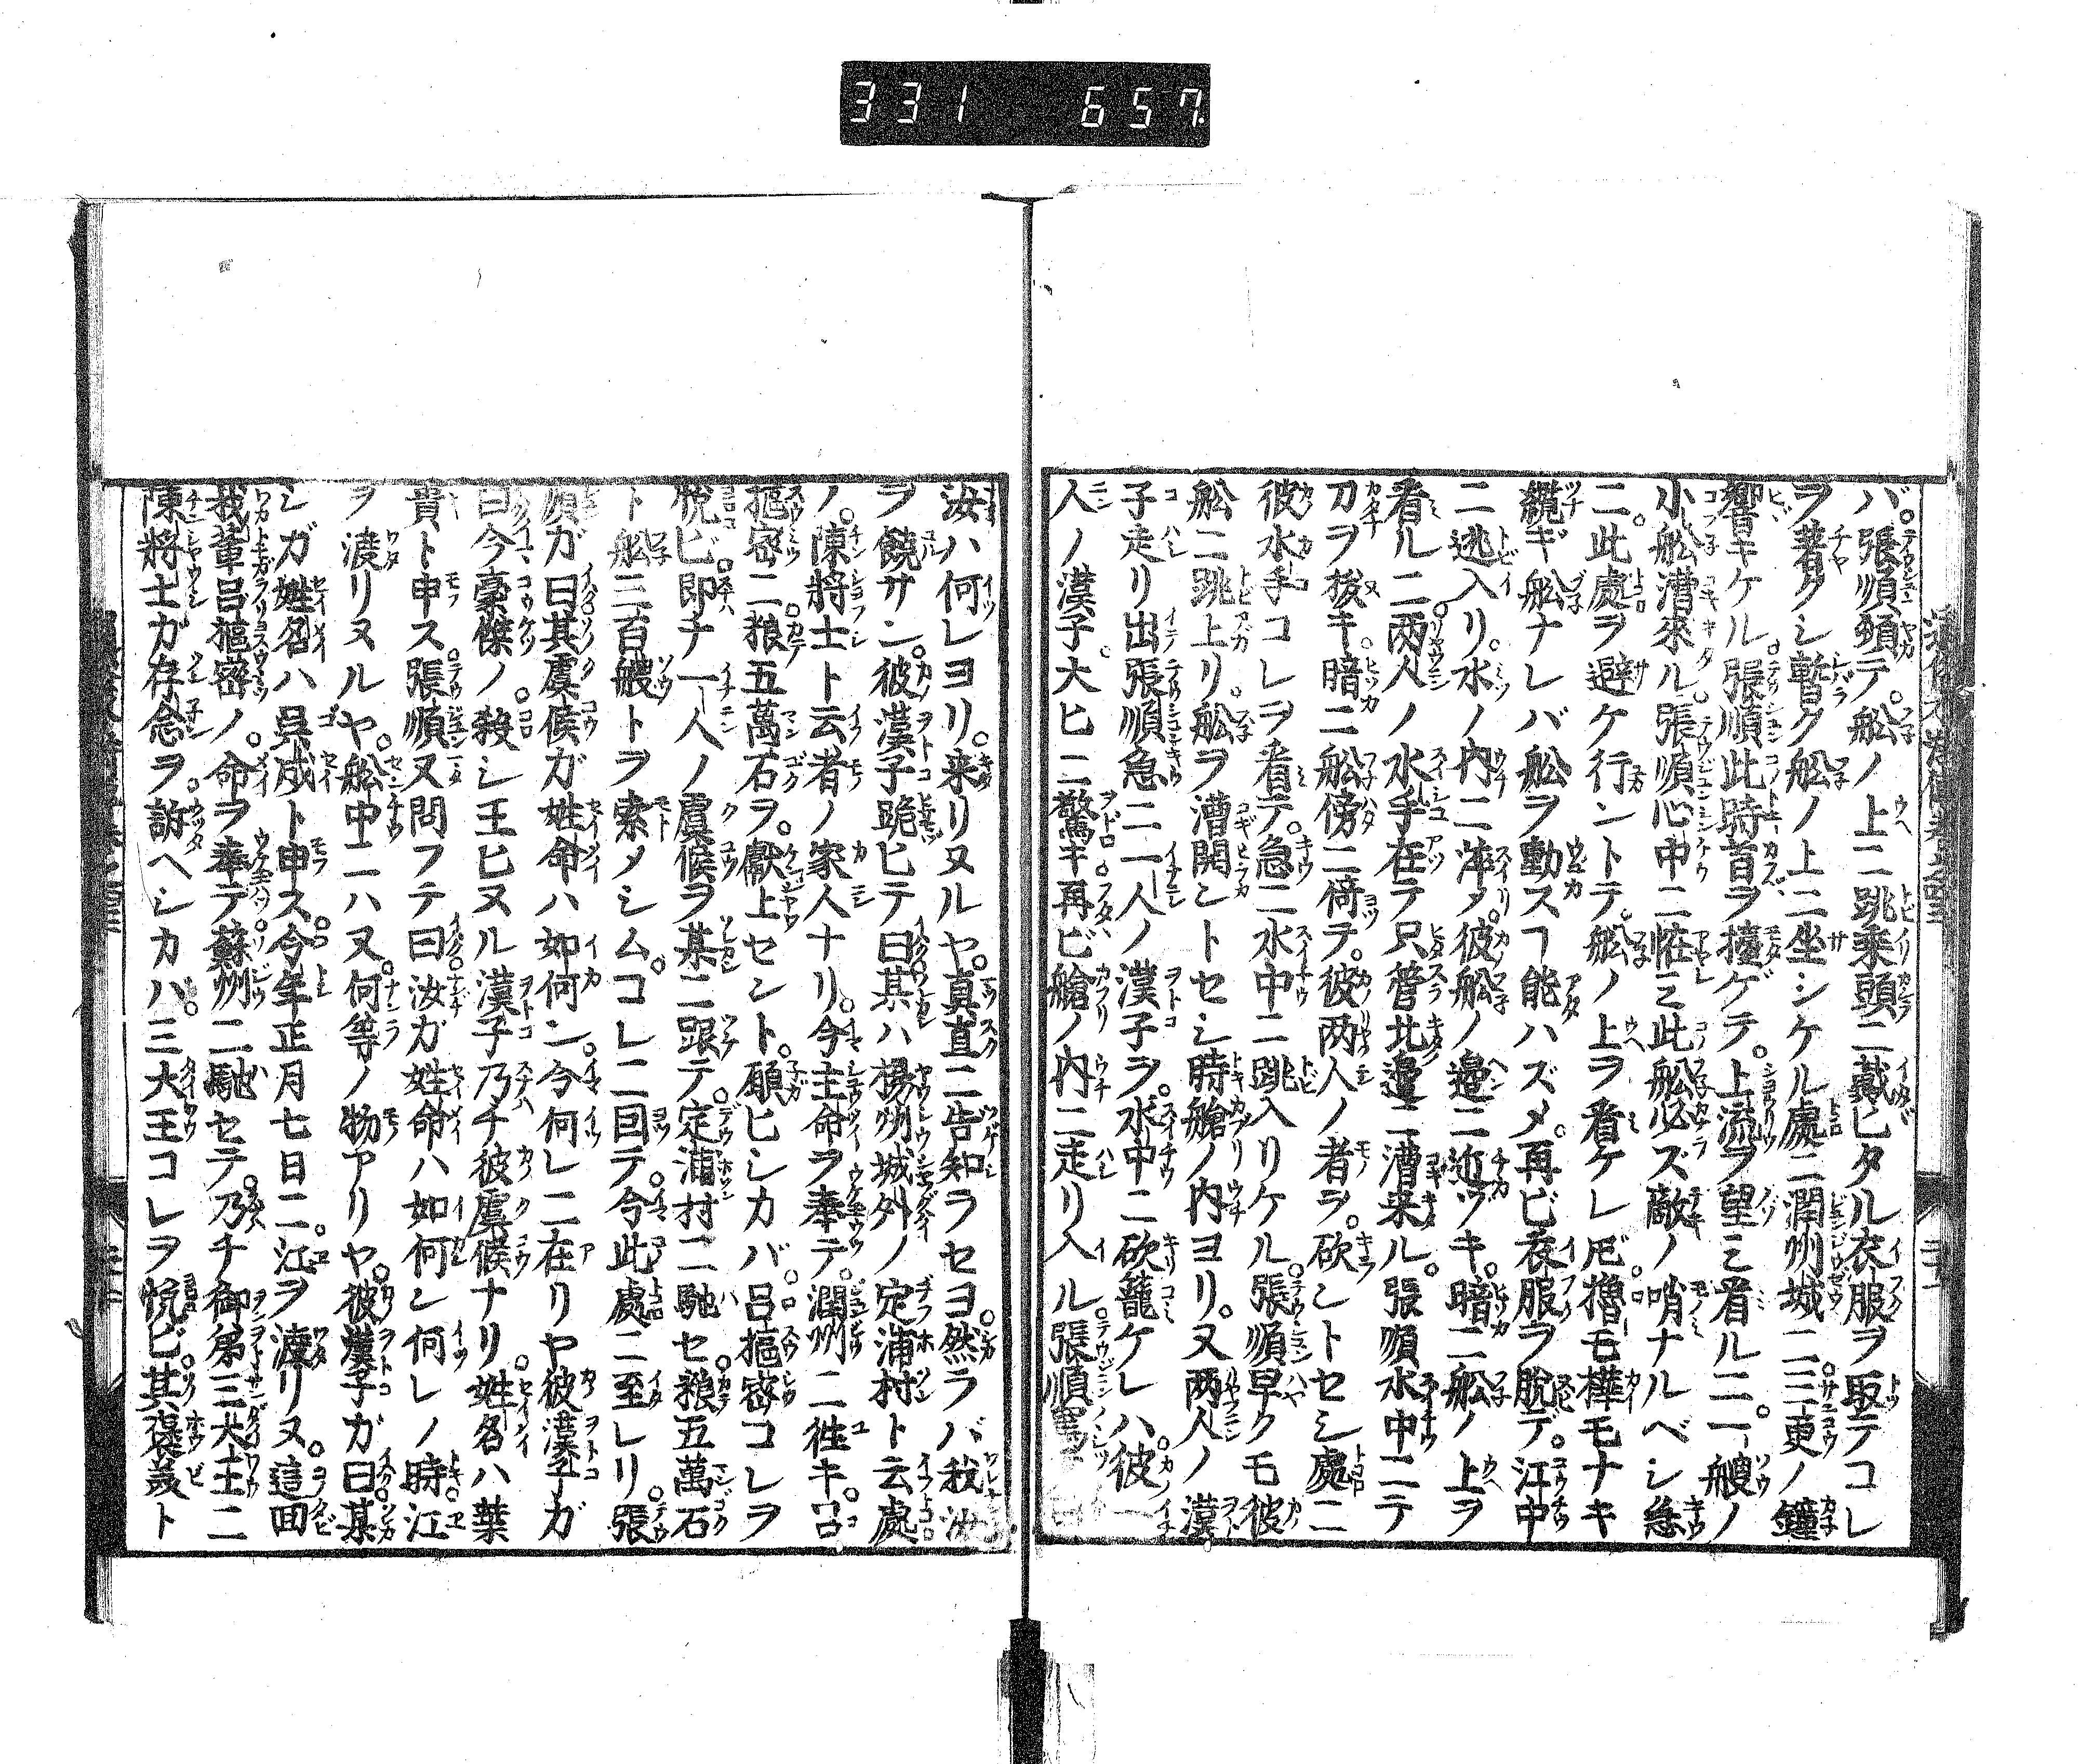 331 657
バ。張順頓テ。舩ノ上ニ跳乗頭ニ戴ヒタル衣服ヲ取テコレ
ヲ著クシ暫ク舩ノ上ニ坐シケル處ニ潤州城ニ三更ノ鐘
響キケル。張順此時首ヲ擡ゲテ。上流ヲ望ミ看ルニ一艘ノ
小舩漕來ル。張順心中ニ恠ミ此舩必ズ敵ノ哨ナルベシ急
ニ此處ヲ避ケ行ントテ。舩ノ上ヲ看ケレ𪜈櫓モ樺モナキ
纜ギ舩ナレバ舩ヲ動スヿ能ハズ〆。再ビ衣服ヲ脱デ。江中
ニ逃入リ。水ノ内ニ浒ヲ。彼舩ノ邉ニ近ヅキ。暗ニ舩ノ上ヲ
看ルニ。兩人ノ水手在テ只管北邉ニ漕来ル。張順水中ニテ
刀ヲ抜キ。暗ニ舩傍ニ倚テ。彼两人ノ者ヲ。砍ントセシ處ニ
彼水手コレヲ看テ。急ニ水中ニ跳入リケル。張順早クモ彼
舩ニ跳上リ。舩ヲ漕開シトセシ時艙ノ内ヨリ。又两人ノ漢
子走リ出張順急ニ一人ノ漢子ヲ。水中ニ砍籠ケレハ。彼一
人ノ漢子。大ヒニ驚キ。再ビ艙ノ内ニ走リ入ル。張順罵
汝ハ何レヨリ。来リヌルヤ。真直ニ告知ラセヨ。然ラバ我汝
ヲ饒サン。彼漢子跪ヒテ曰某ハ楊州城外ノ定浦村ト云處
ノ。陳將士ト云者ノ家人ナリ。今主命ヲ奉テ。潤州ニ徃キ。呂
摳密ニ。粮五萬石ヲ。獻上セント。願ヒシカバ。呂摳密コレヲ
悦ビ。即チ一人ノ虞候ヲ某ニ跟テ。定浦村ニ馳セ。粮五萬石
ト舩三百艘トヲ索メシム。コレニ回テ。今此處ニ至レリ。張
順ガ曰其虞候ガ姓命ハ如何ン。今何レニ在リヤ彼漢子ガ
曰今豪傑ノ。殺シ玉ヒヌル漢子乃チ彼虞候ナリ。姓名ハ葉
貴ト申ス。張順又問フテ曰汝ガ姓命ハ如何ン何レノ時。江
ヲ渡リヌルヤ。舩中ニハ又何等ノ物アリヤ。彼漢子ガ曰某
シガ姓名ハ呉成ト申ス。今年正月七日ニ。江ヲ渡リヌ。這回
我輩呂摳密ノ。命ヲ奉テ蘇州ニ馳セテ。乃チ御弟三大王ニ
陳將士ガ存念ヲ。訴ヘシカバ。三大王コレヲ悦ビ。其褒羙ト